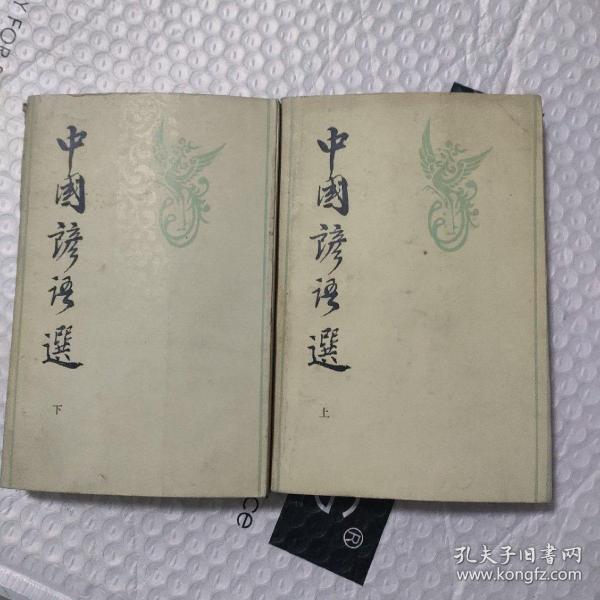 中國諺语選
下
中國諺语選
上
Y FOR
ce
®
孔夫子旧书网
www.kongfz.com